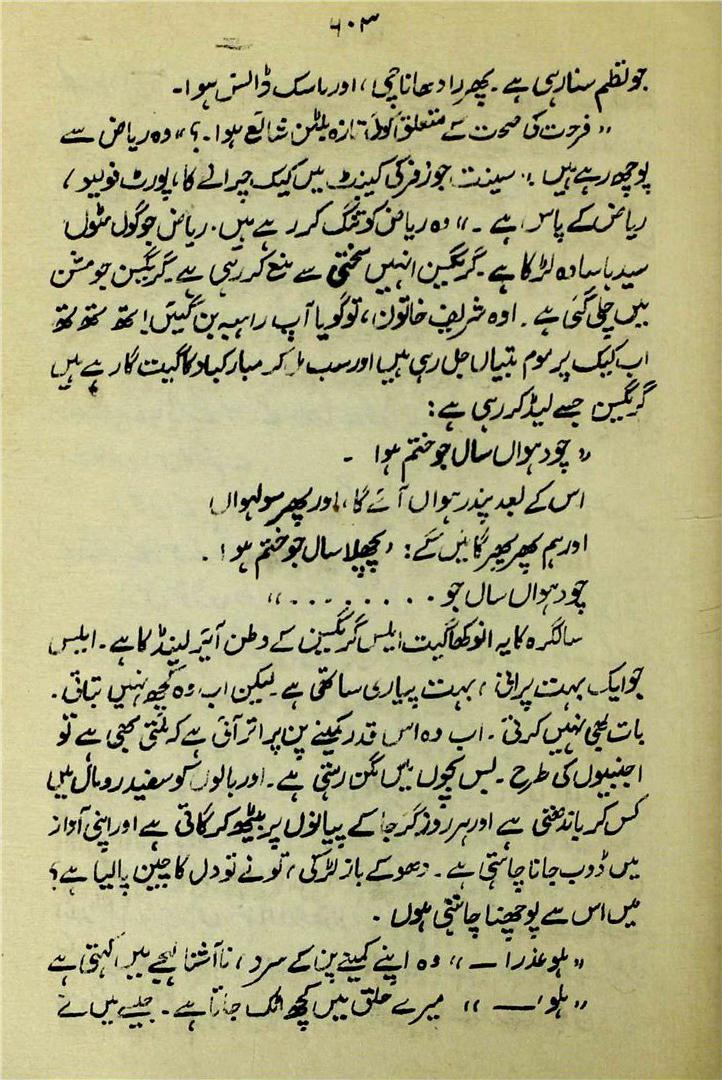 ۶۰۳
جو نظم سنا رہی ہے۔ پھر رادھا ناچی، اور باسک ڈانس ہوا۔
”فرحت کی صحت کے متعلق کوئی تازہ بلٹن شائع ہوا۔؟“ وہ ریاض سے
پوچھ رہے ہیں۔ ”سینٹ جوزفز کی کینٹ میں کیک چرانے کا، پورٹ فولیو،
ریاض کے پاس ہے۔“ وہ ریاض کو تنگ کر رہے ہیں۔ ریاض جو گول مٹول
سیدھا سادہ لڑکا ہے۔ گریگین انہیں سختی سے منع کر رہی ہے۔ گریگین جو مشن
میں چلی گئی ہے۔ اوہ شریف خاتون، تو گویا آپ راہبہ بن گئیں! تھ تھ تھ
اب کیک پر موم بتیاں جل رہی ہیں اور سب مل کر مبارکباد کا گیت گا رہے ہیں
گریگین جسے لیڈ کر رہی ہے:
”چودہواں سال جو ختم ہوا ۔
اس کے بعد پندرہواں آئے گا، اور پھر سولہواں
اور ہم پھر پھر گائیں گے: ’پچھلا سال جو ختم ہوا۔
چودہواں سال جو ۔۔۔۔۔۔۔۔“
سالگرہ کا یہ انوکھا گیت ایلس گریگین کے وطن آئرلینڈ کا ہے۔ ایلس
جو ایک بہت پرانی، بہت پیاری ساتھی ہے لیکن اب وہ کچھ نہیں بتاتی۔
بات بھی نہیں کرتی۔ اب وہ اس قدر کمینے پن پر اتر آئی ہے کہ ملتی بھی ہے تو
اجنبیوں کی طرح۔ بس بچوں میں مگن رہتی ہے۔ اور بالوں کو سفید رومال میں
کس کر باندھتی ہے اور ہر روز گرجا کے پیانوں پر بیٹھ کر گاتی ہے اور اپنی آواز
میں ڈوب جانا چاہتی ہے۔ دھوکے باز لڑکی، تو نے تو دل کا چین پا لیا ہے؟
میں اس سے پوچھنا چاہتی ہوں۔
”ہلو عذرا —“ وہ اپنے کمینے پن کے سرد، نا آشنا لہجے میں کہتی ہے
”ہلو —“ میرے حلق میں کچھ اٹک جاتا ہے۔ جیسے میں نے